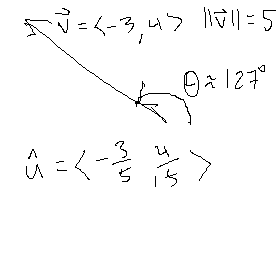 v⃗ = <-3, 4> ||v⃗|| = 5
θ ≈ 127°
û = <-3/5, 4/5>